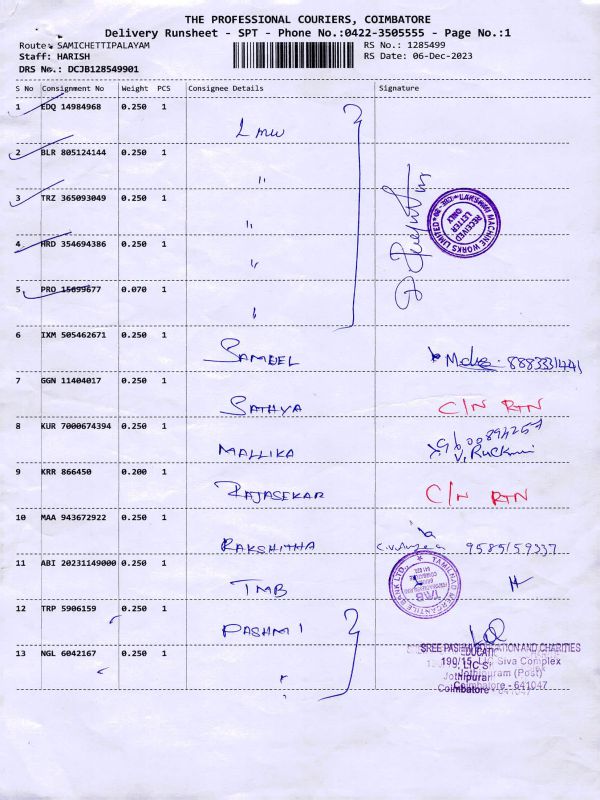 THE PROFESSIONAL COURIERS, COIMBATORE
Delivery Runsheet - SPT - Phone No.:0422-3505555 - Page No.:1
Route: SAMICHETTIPALAYAM
RS No.: 1285499
Staff: HARISH
RS Date: 06-Dec-2023
DRS No.: DCJB128549901
S No Consignment No Weight PCS Consignee Details Signature
1 EDQ 14984968 0.250 1
Lmw
2 BLR 805124144 0.250 1
"
3 TRZ 365093049 0.250 1
"
4 HRD 354694386 0.250 1
"
5 PRO 15699677 0.070 1
"
LAKSHMI MACHINE WORKS LIMITED
RECEIVED
LETTER
ONLY
6 IXM 505462671 0.250 1
SAMBEL
7 GGN 11404017 0.250 1
SATHYA C/N RTN
8 KUR 7000674394 0.250 1
MALLIKA
9 KRR 866450 0.200 1
RAJASEKAR C/N RTN
10 MAA 943672922 0.250 1
RAKSHITHA
11 ABI 20231149000 0.250 1
TMB
TAMILNAD MERCANTILE BANK LTD.,
TMB
12 TRP 5906159 0.250 1
PASHMI
13 NGL 6042167 0.250 1
"
190/15, Siva Complex
Jothipuram (Post)
Coimbatore - 641047